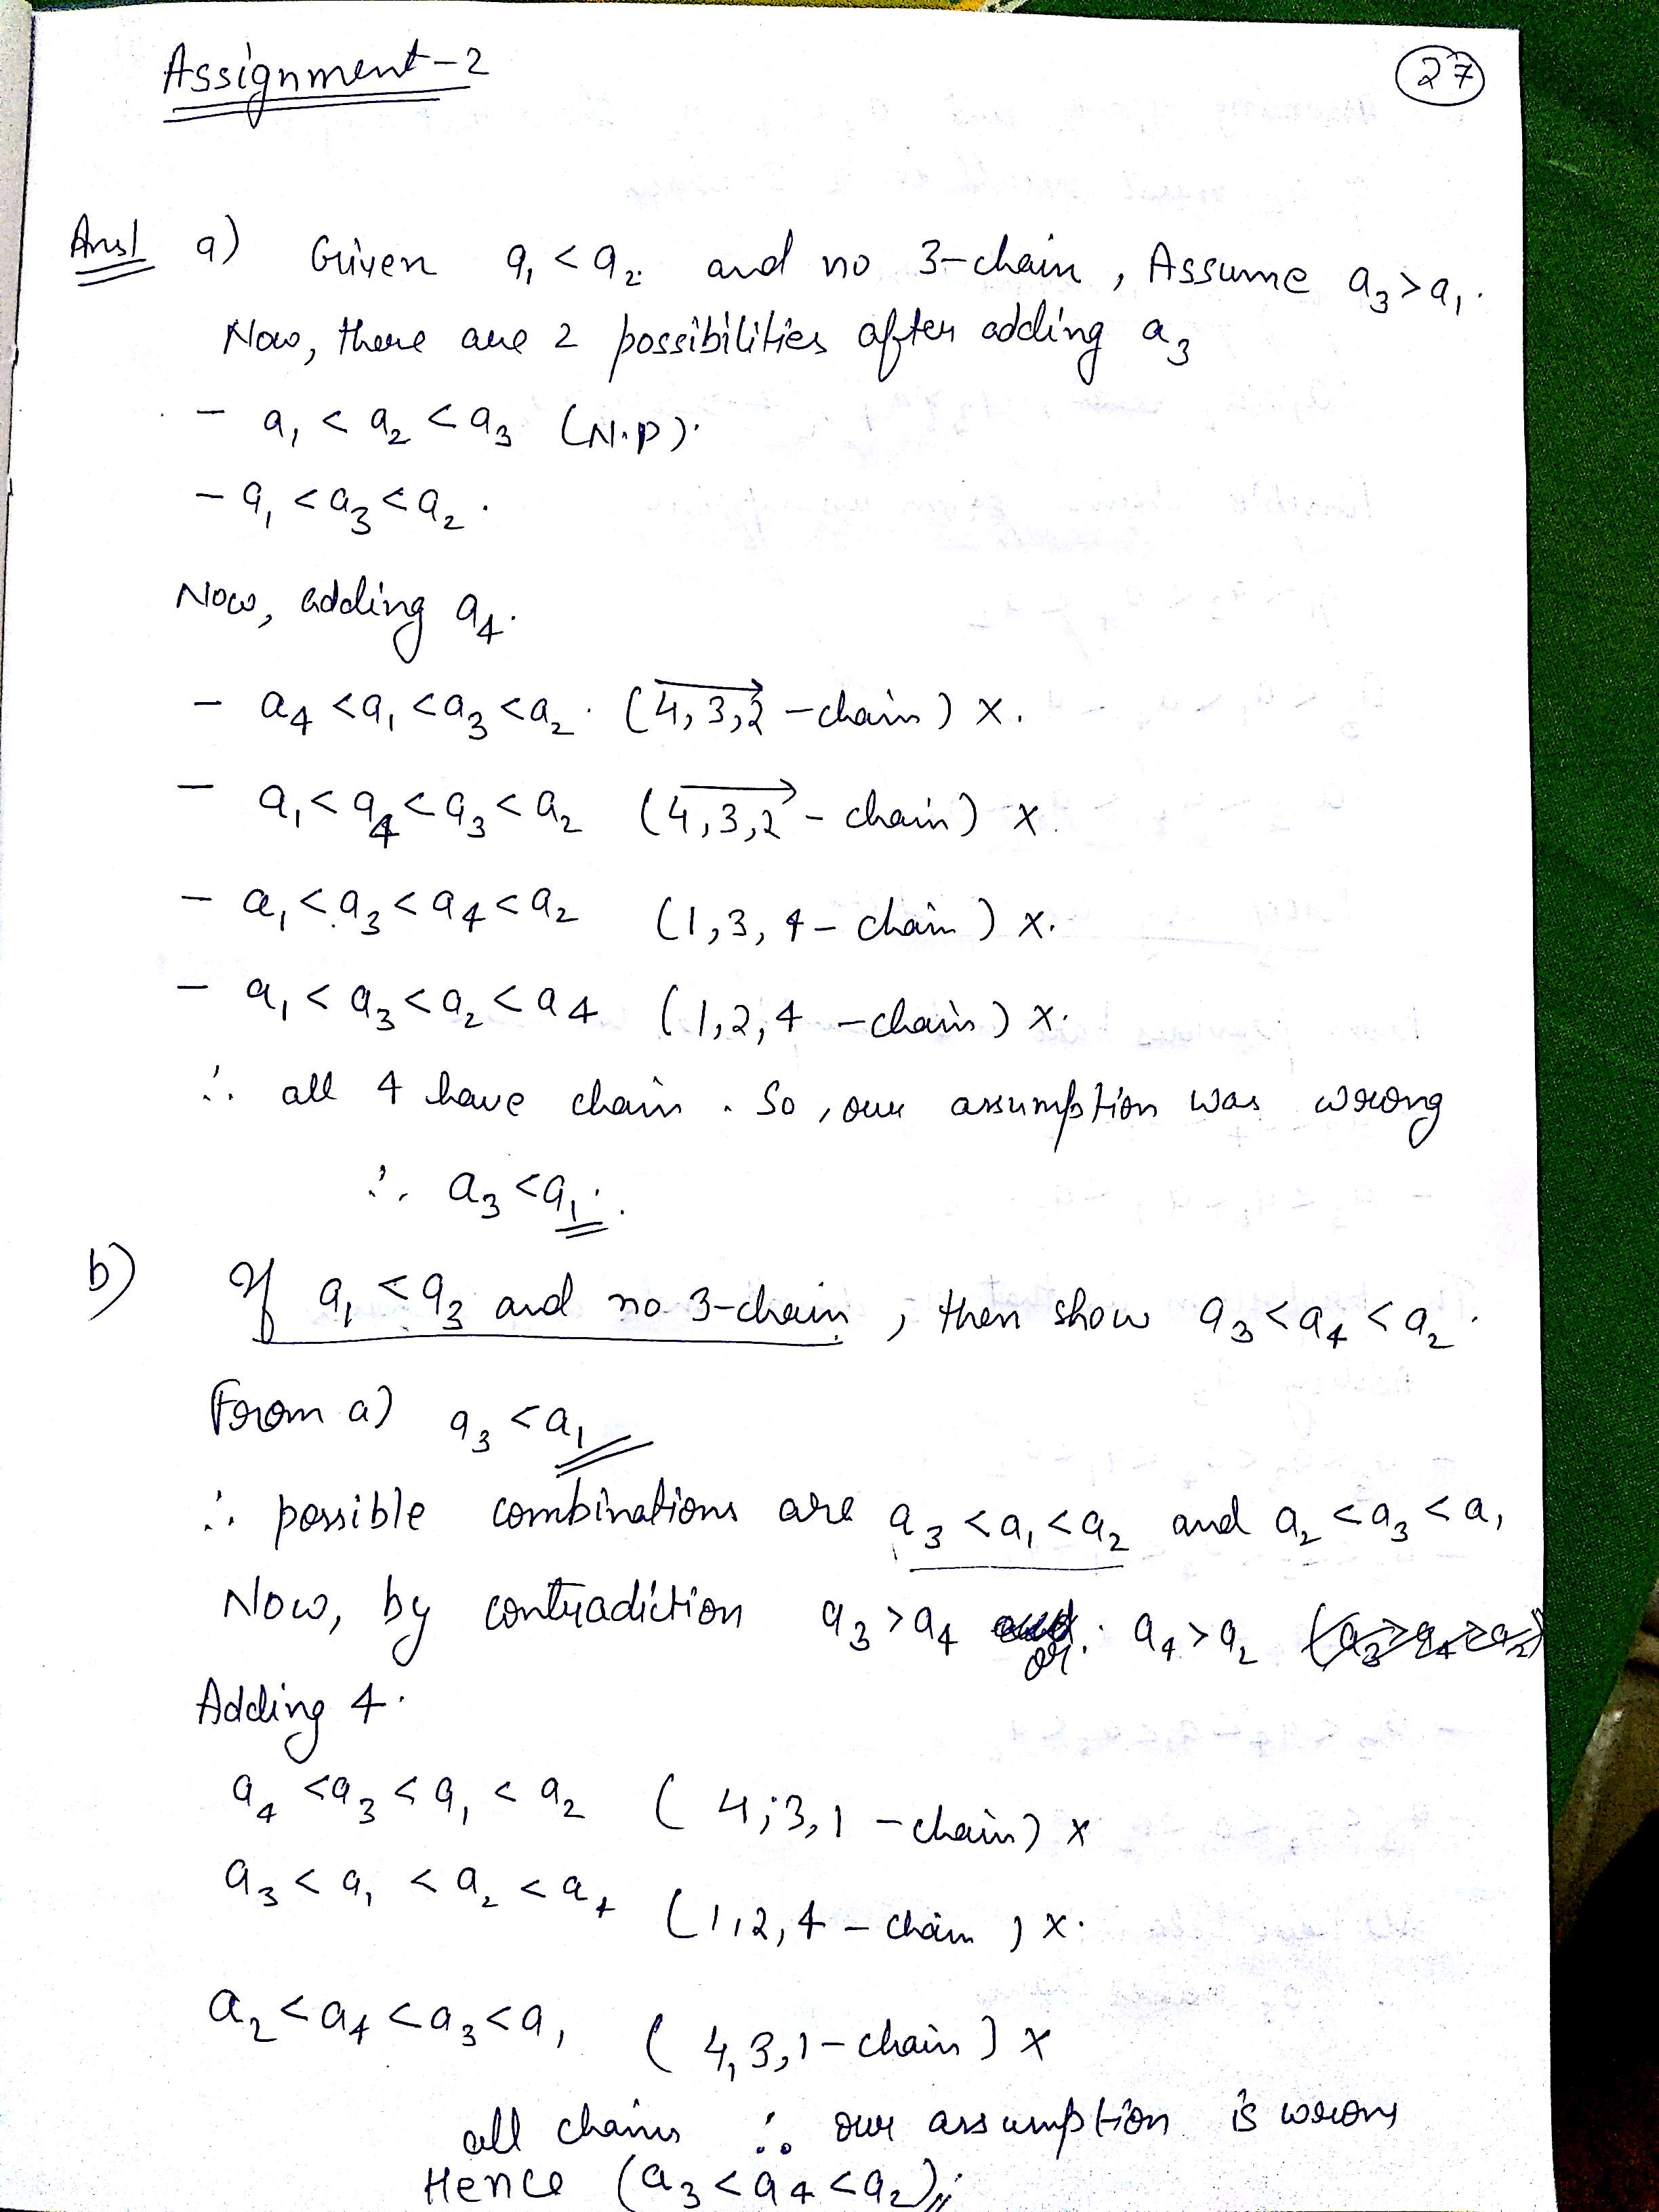 Assignment-2
27
Ans1 a) Given a₁ < a₂ and no 3-chain, Assume a₃>a₁.
Now, there are 2 possibilities after adding a₃
- a₁ < a₂ < a₃ (N.P).
- a₁ < a₃ < a₂.
Now, adding a₄.
- a₄ < a₁ < a₃ < a₂. (4,3,2 - chain) x.
- a₁ < a₄ < a₃ < a₂ (4,3,2 - chain) x.
- a₁ < a₃ < a₄ < a₂ (1,3,4 - chain) x.
- a₁ < a₃ < a₂ < a4 (1,2,4 - chain) x.
∴ all 4 have chain. So, our assumption was wrong
∴ a₃ < a₁.
b) If a₁ < a₃ and no 3-chain, then show a₃ < a₄ < a₂.
From a) a₃ < a₁
∴ possible combinations are a₃ < a₁ < a₂ and a₂ < a₃ < a₁
Now, by contradiction a₃ > a₄ or. a₄ > a₂ (a₃ > a₄ > a₂)
Adding 4.
a₄ < a₃ < a₁ < a₂ (4,3,1 - chain) x
a₃ < a₁ < a₂ < a₄ (1,2,4 - chain) x.
a₂ < a₄ < a₃ < a₁ (4,3,1 - chain) x
all chains ∴ our assumption is wrong
Hence (a₃ < a₄ < a₂)